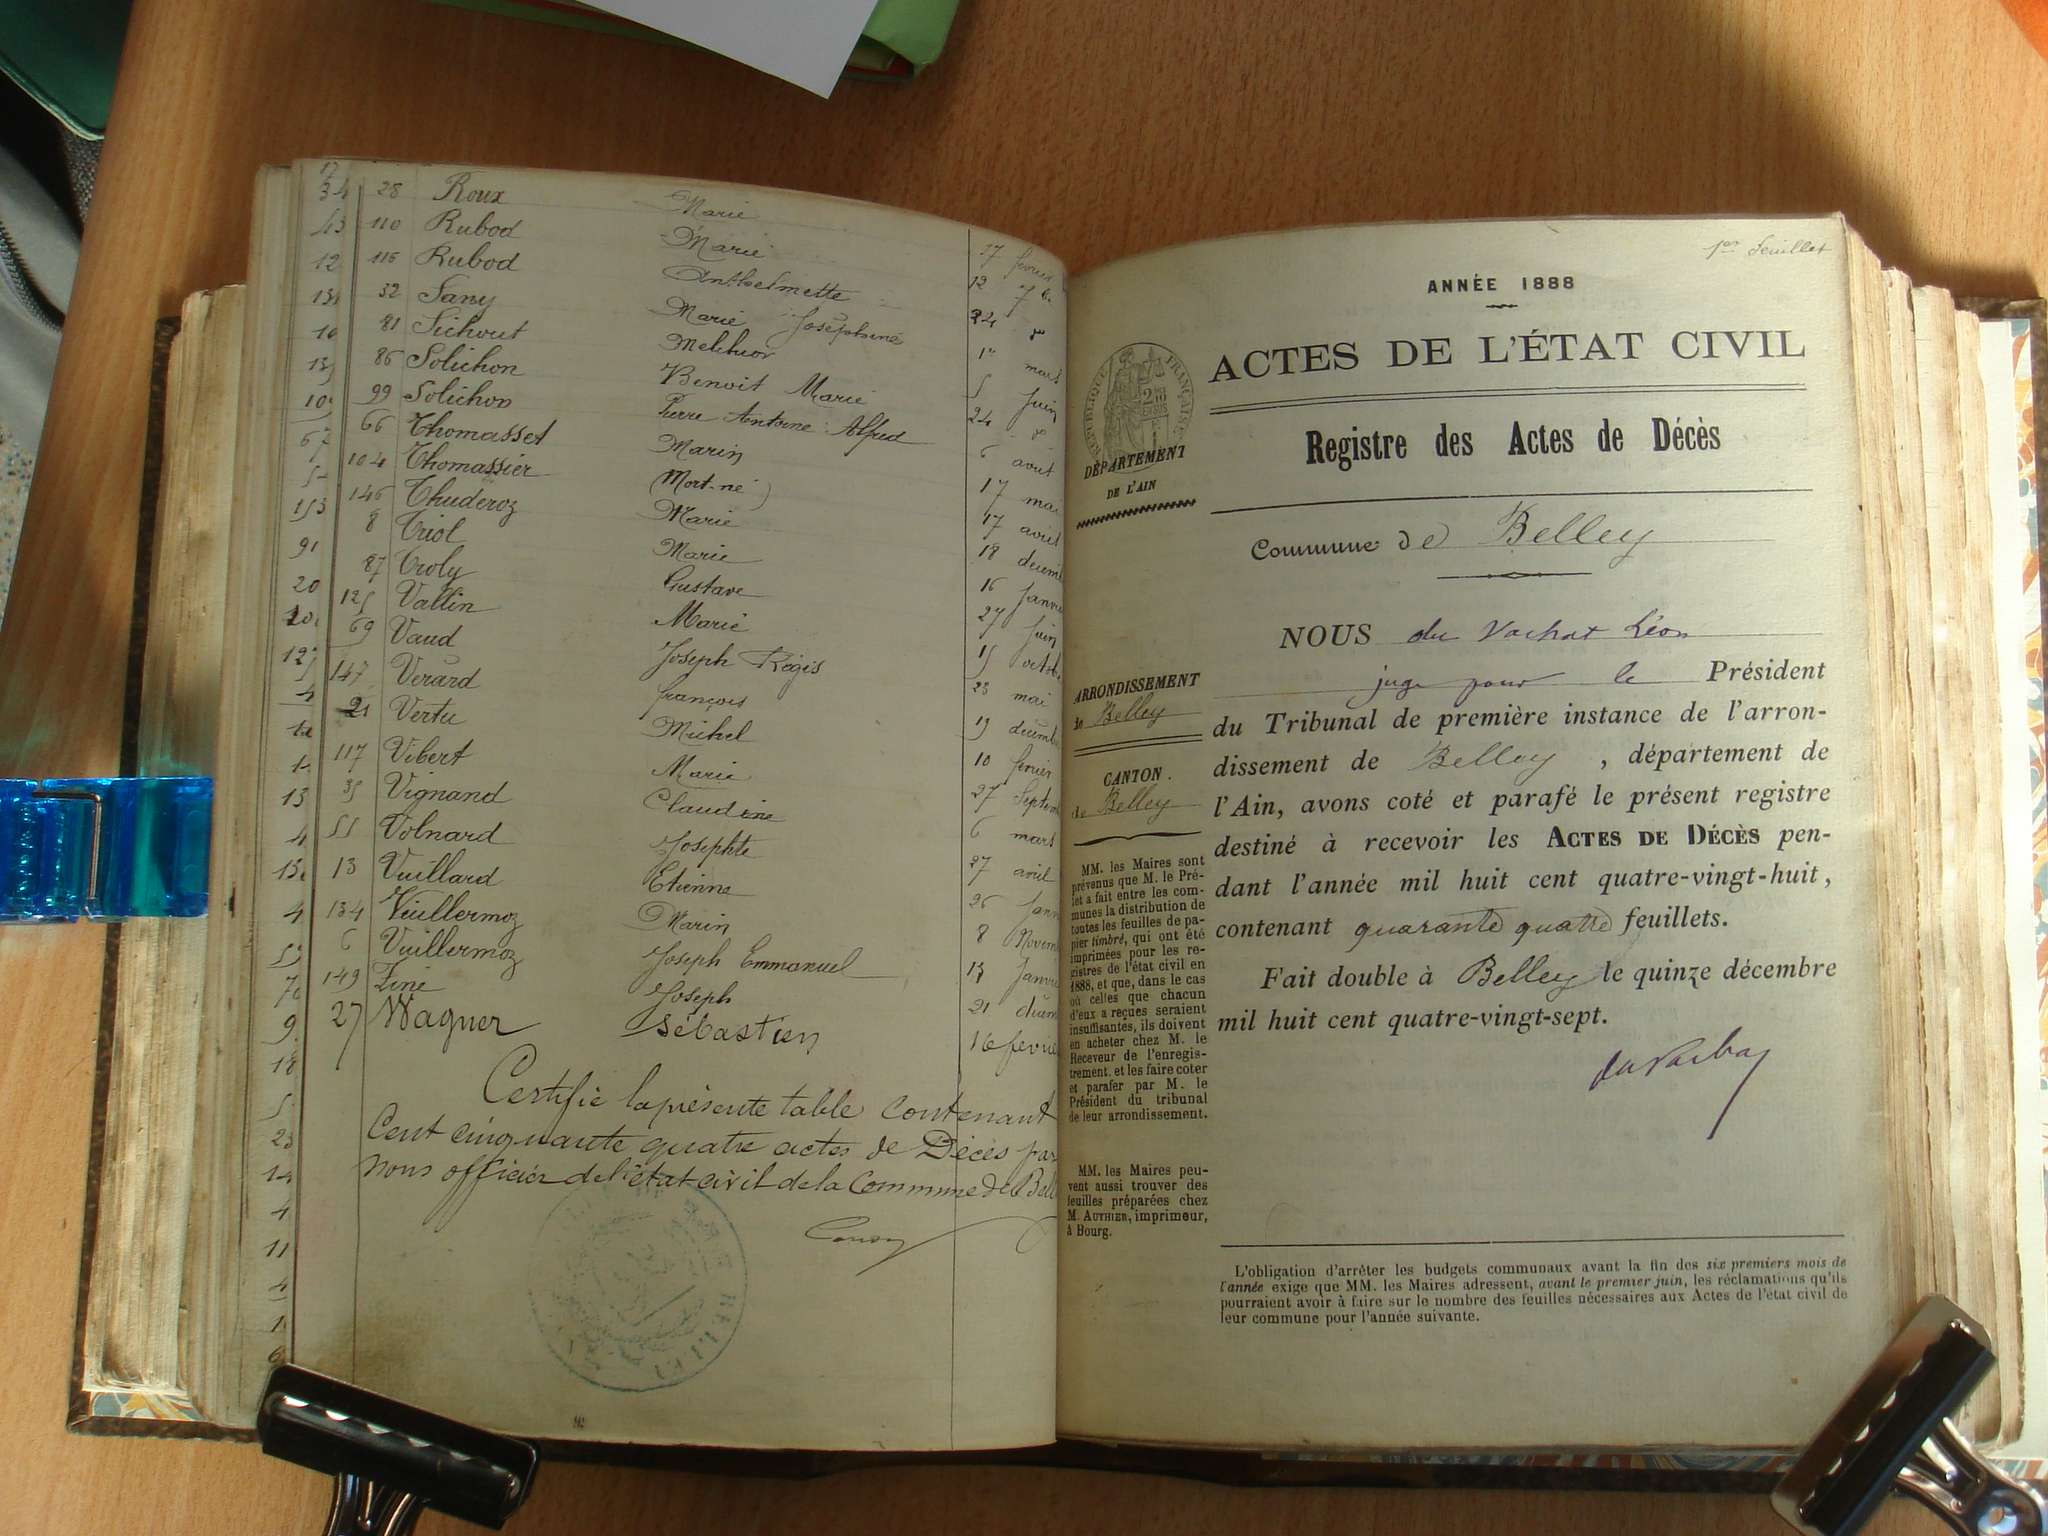 28 Roux Marie 17 février
110 Rubod Marie 12 7bre
116 Rubod Anthelmette 24
32 Sany Marie Joséphine 1er mars
81 Sichout Melchior 5 juin
86 Solichon Benoit Marie 24
99 Solichon Pierre Antoine Alfred 6 août
66 Thomasset Marin 17 mai
104 Thomassier (Mort-né) 17 août
146 Thuderoz Marie 18 décemb
8 Triol Marie 16 janvie
87 Troly Gustave 27 juin
125 Vallin Marie 15 octob
69 Vaud Joseph Régis 23 mai
147 Verard françois 19 décemb
21 Vertu Michel 10 février
117 Vibert Marie 27 Septem
35 Vignand Claudine 6 mars
55 Volnard Josephte 27 avril
13 Vuillard Etienne 26 Janv
134 Vuillermoz Marin 8 Novem
6 Vuillermoz Joseph Emmanuel 13 Janvie
149 Zine Joseph 21 décem
27 Wagner Sébastien 16 fevrie
Certifié la présente table contenant
Cent cinquante quatre actes de Décès par
nous officier de l'état civil de la Commune de Bell
1er feuillet
ANNÉE 1888
ACTES DE L'ÉTAT CIVIL
RÉPUBLIQUE FRANÇAISE
Registre des Actes de Décès
DÉPARTEMENT
DE L'AIN
Commune de Belley
NOUS du Vachat Léon
juge pour le Président
du Tribunal de première instance de l'arron-
dissement de Belley, département de
l'Ain, avons coté et parafé le présent registre
destiné à recevoir les ACTES DE DÉCÈS pen-
dant l'année mil huit cent quatre-vingt-huit,
contenant quarante quatre feuillets.
Fait double à Belley le quinze décembre
mil huit cent quatre-vingt-sept.
du Vachat
ARRONDISSEMENT
de Belley
CANTON
de Belley
MM. les Maires sont
prévenus que M. le Pré-
fet a fait entre les com-
munes la distribution de
toutes les feuilles de pa-
pier timbré, qui ont été
imprimées pour les re-
gistres de l'état civil en
1888, et que, dans le cas
où celles que chacun
d'eux a reçues seraient
insuffisantes, ils doivent
en acheter chez M. le
Receveur de l'enregis-
trement, et les faire coter
et parafer par M. le
Président du tribunal
de leur arrondissement.
MM. les Maires peu-
vent aussi trouver des
feuilles préparées chez
M. AUTHIER, imprimeur,
à Bourg.
L'obligation d'arrêter les budgets communaux avant la fin des six premiers mois de
l'année exige que MM. les Maires adressent, avant le premier juin, les réclamations qu'ils
pourraient avoir à faire sur le nombre des feuilles nécessaires aux Actes de l'état civil de
leur commune pour l'année suivante.